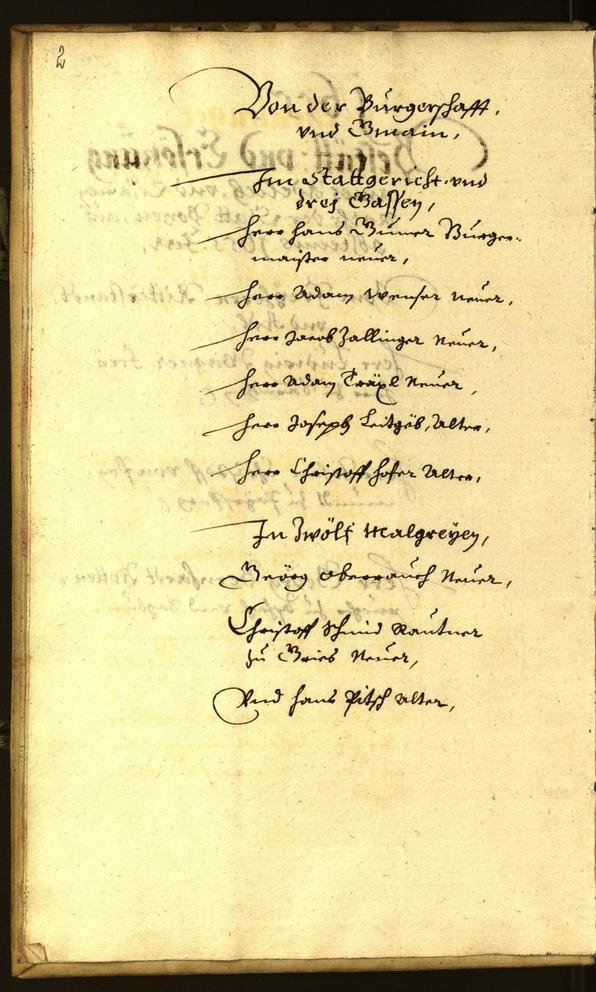 2
Von der Burgerschafft,
vnd Gmain,
Im Stattgericht vnd
drej Gassen,
Herr Hans Gumer Burger-
maister neuer,
Herr Adam Wenser Neuer,
Herr Jacob Zallinger Neuer,
Herr Adam Träxl Neuer,
Herr Joseph Leitgëb, Alter,
Herr Christoff Hofer Alter,
In Zwölf Malgreyen,
Geörg Oberrauch Neuer,
Christoff Schmid Rautner
zu Gries Neuer,
Vnd Hans Pitsch Alter,